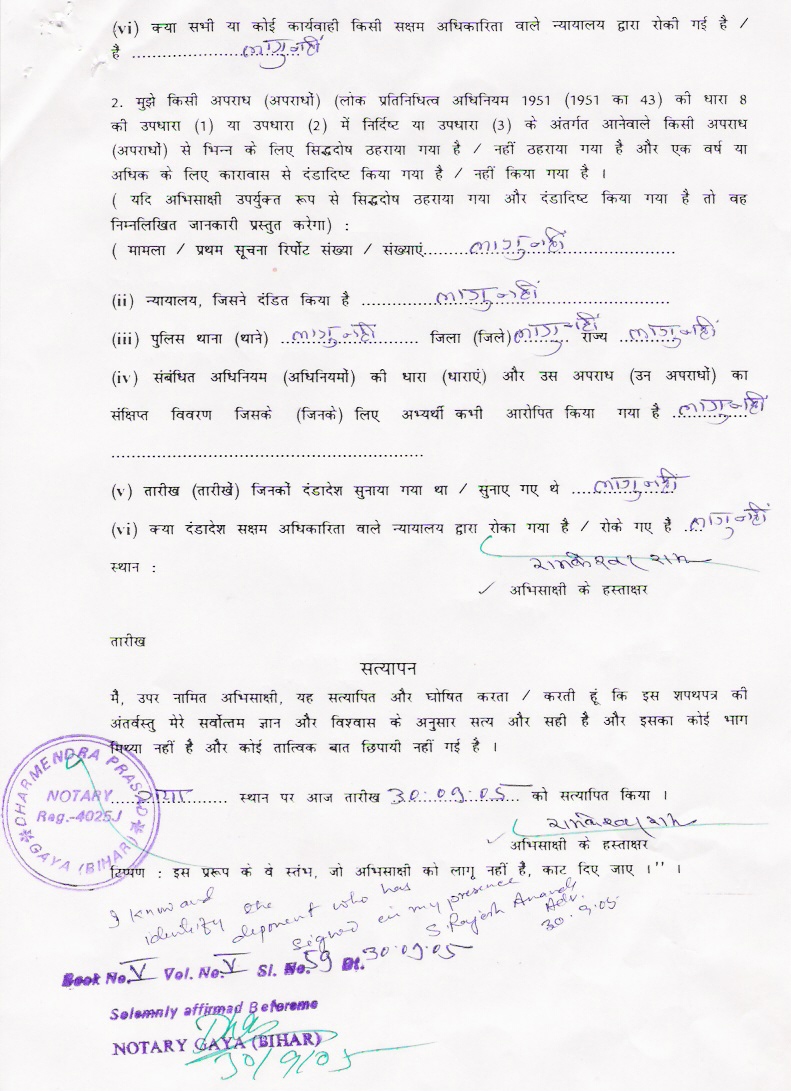 (vi) क्या सभी या कोई कार्यवाही किसी सक्षम अधिकारिता वाले न्यायालय द्वारा रोकी गई है /
है ........................लागु नहीं
2. मुझे किसी अपराध (अपराधों) (लोक प्रतिनिधित्व अधिनियम 1951 (1951 का 43) की धारा 8
की उपधारा (1) या उपधारा (2) में निर्दिष्ट या उपधारा (3) के अंतर्गत आनेवाले किसी अपराध
(अपराधों) से भिन्न के लिए सिद्धदोष ठहराया गया है / नहीं ठहराया गया है और एक वर्ष या
अधिक के लिए कारावास से दंडादिष्ट किया गया है / नहीं किया गया है ।
( यदि अभिसाक्षी उपर्युक्त रूप से सिद्धदोष ठहराया गया और दंडादिष्ट किया गया है तो वह
निम्नलिखित जानकारी प्रस्तुत करेगा) :
( मामला / प्रथम सूचना रिर्पोट संख्या / संख्याएं.........लागु नहीं......................
(ii) न्यायालय, जिसने दंडित किया है ...............लागु नहीं...........................
(iii) पुलिस थाना (थाने) ..लागु नहीं........ जिला (जिले)लागु नहीं.. राज्य ..लागु नहीं
(iv) संबंधित अधिनियम (अधिनियमों) की धारा (धाराएं) और उस अपराध (उन अपराधों) का
संक्षिप्त विवरण जिसके (जिनके) लिए अभ्यर्थी कभी आरोपित किया गया है ..लागु नहीं
................................................................
(v) तारीख (तारीखें) जिनकों दंडादेश सुनाया गया था / सुनाए गए थे .....लागु नहीं
(vi) क्या दंडादेश सक्षम अधिकारिता वाले न्यायालय द्वारा रोका गया है / रोके गए है ...लागु नहीं
रामकेश्वर राम
स्थान :
अभिसाक्षी के हस्ताक्षर
तारीख
सत्यापन
मैं, उपर नामित अभिसाक्षी, यह सत्यापित और घोषित करता / करती हूं कि इस शपथपत्र की
अंतर्वस्तु मेरे सर्वोत्तम ज्ञान और विश्वास के अनुसार सत्य और सही है और इसका कोई भाग
मिथ्या नहीं है और कोई तात्विक बात छिपायी नहीं गई है ।
DHARMENDRA PRASAD
NOTARY
Reg.-4025J
GAYA (BIHAR)
.....गया......... स्थान पर आज तारीख 30.09.05 को सत्यापित किया ।
रामकेश्वर राम
अभिसाक्षी के हस्ताक्षर
टिप्पण : इस प्ररूप के वे स्तंभ, जो अभिसाक्षी को लागू नहीं है, काट दिए जाए ।" ।
I know and
identify the
deponent who has
signed in my presence
S. Rajesh Anand
Adv.
30.9.05
Book No. V Vol. No. V Sl. No. 59 Dt. 30.09.05
Solemnly affirmad Beforeme
NOTARY GAYA (BIHAR)
30/9/05